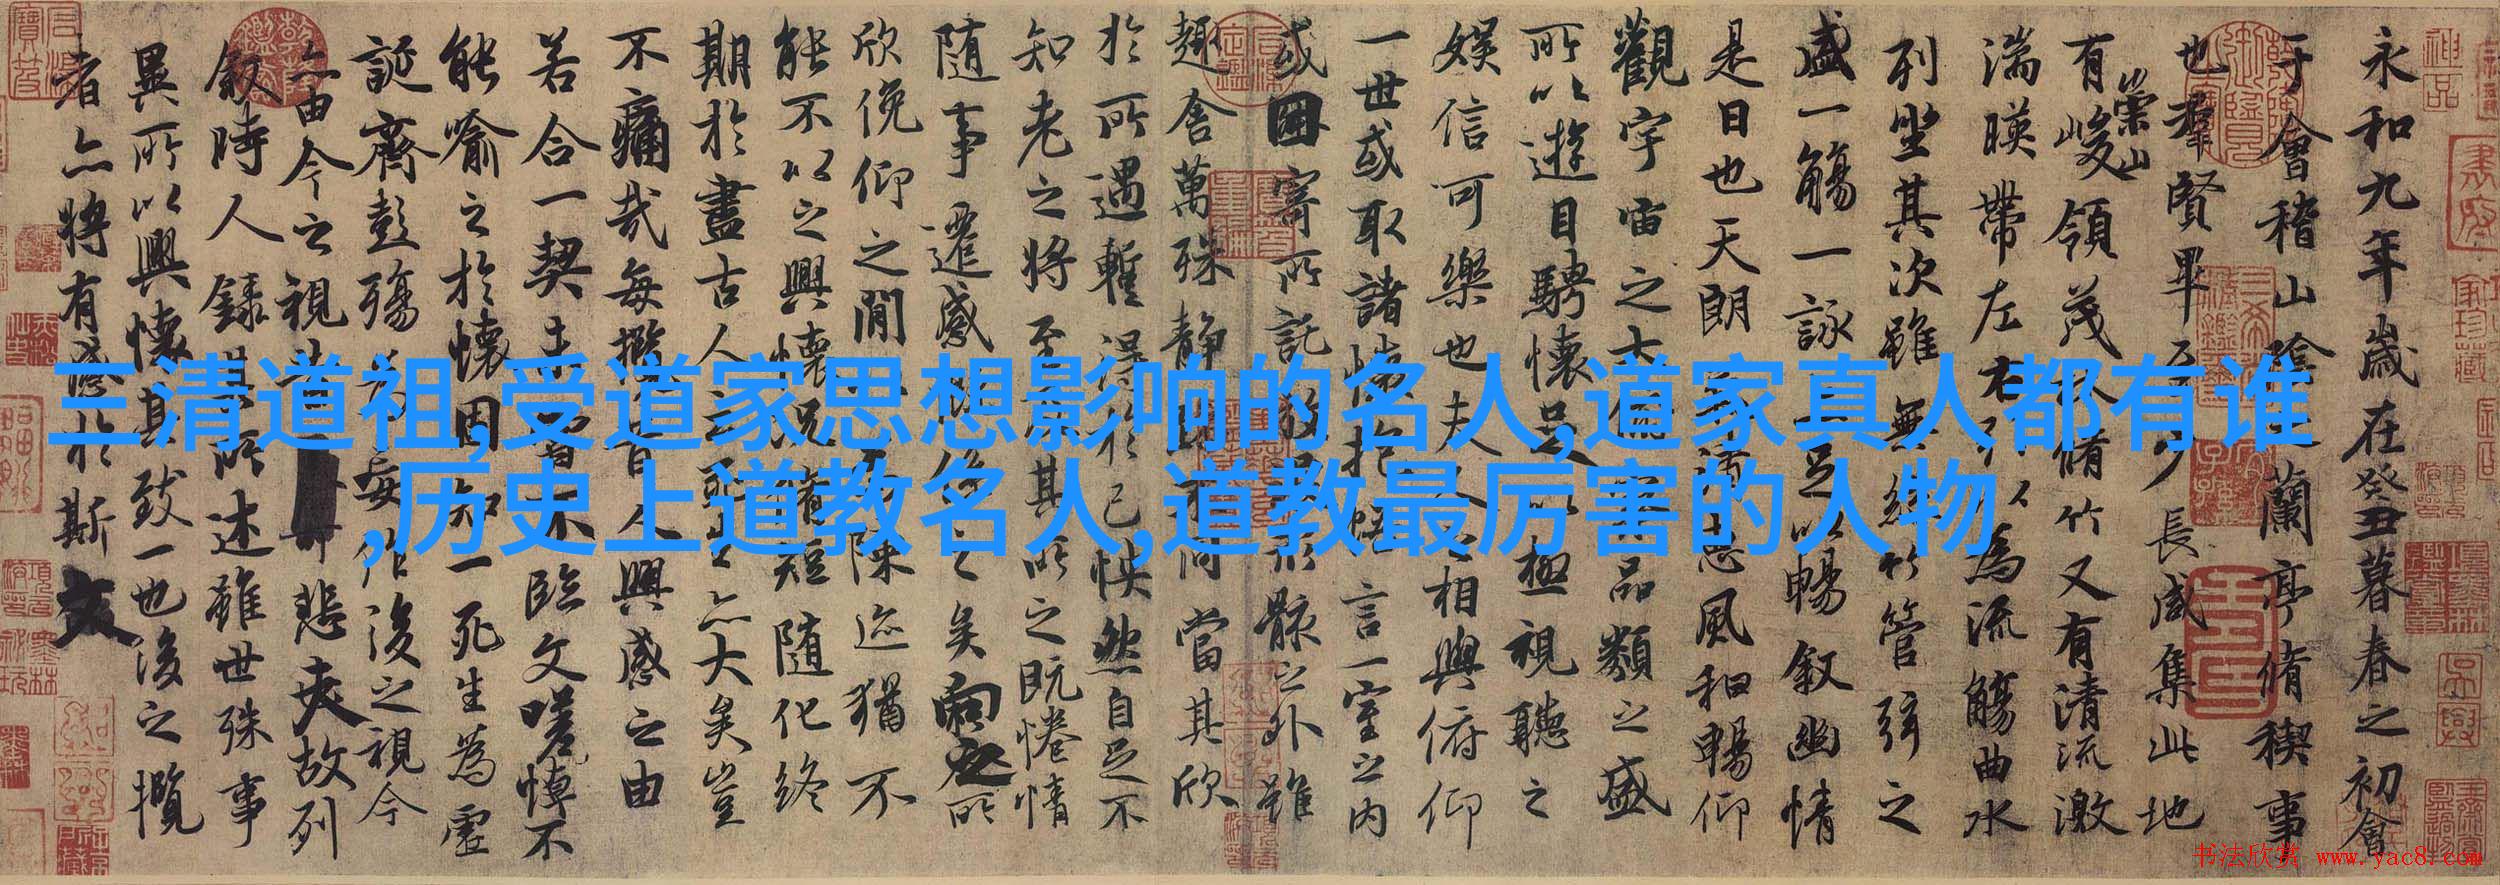 三清道祖,受道家思想影响的名人,道家真人都有谁
,历史上道教名人,道教最厉害的人物
永和九年歲在癸丑暮春之初會
于會稽山陰之蘭亭脩稧事
也羣賢畢至少長咸集此地
有崇山峻領茂林脩竹又有清流激
湍暎帶左右引以為流觴曲水
列坐其次雖無絲竹管弦之
盛一觴一詠亦足以暢敘幽情
是日也天朗氣清惠風和暢仰
觀宇宙之大俯察品類之盛
所以遊目騁懷足以極視聽之
娛信可樂也夫人之相與俯仰
一世或取諸懷抱悟言一室之內
或因寄所託放浪形骸之外雖
趣舍萬殊靜躁不同當其欣
於所遇蹔得於己怏然自足不
知老之將至及其所之既惓情
隨事遷感慨係之矣向之所
欣俛仰之閒以為陳迹猶不
能不以之興懷況脩短隨化終
期於盡古人云死生亦大矣豈
不痛哉每攬昔人興感之由
若合一契未嘗不臨文嗟悼不
能喻之於懷固知一死生為虛
誕齊彭殤為妄作後之視今
亦由今之視昔悲夫故列
敘時人錄其所述雖世殊事
異所以興懷其致一也後之攬
者亦將有感於斯文
书法欣赏 www.yac8.com